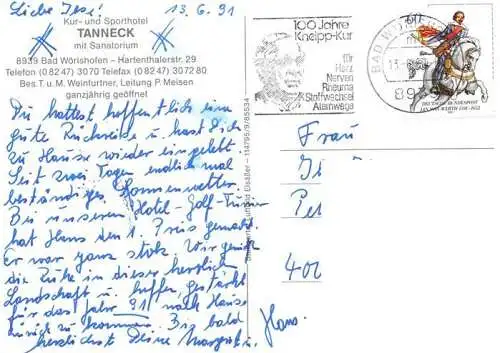 Liebe Ilse!
13.6.91
Kur- und Sporthotel
TANNECK
mit Sanatorium
8939 Bad Wörishofen - Hartenthalerstr. 29
Telefon (0 82 47) 30 70 Telefax (0 82 47) 30 72 80
Bes. T. u. M. Weinfurtner, Leitung P. Meisen
ganzjährig geöffnet
Du hattest hoffentlich eine
gute Rückreise u. hast Dich
zu Hause wieder eingelebt
Seit zwei Tagen endlich mal
beständiges Sommerwetter.
Bei unserem Hotel-Golf-Turnier
hat Hans den 1. Preis gemacht.
Er war ganz stolz. Wir genießen
die Ruhe in dieser herrlichen
Landschaft u. hoffen, gestärkt
für das Jahr 91 nach Hause
zurück zu kommen. Bis bald
herzlichst Deine
Hans.
114795/9/85534
100 Jahre
Kneipp-Kur
für
Herz
Nerven
Rheuma
Stoffwechsel
Atemwege
BAD WÖ
13.-6.
89
DEUTSCHE BUNDESPOST
Frau
Pet
400